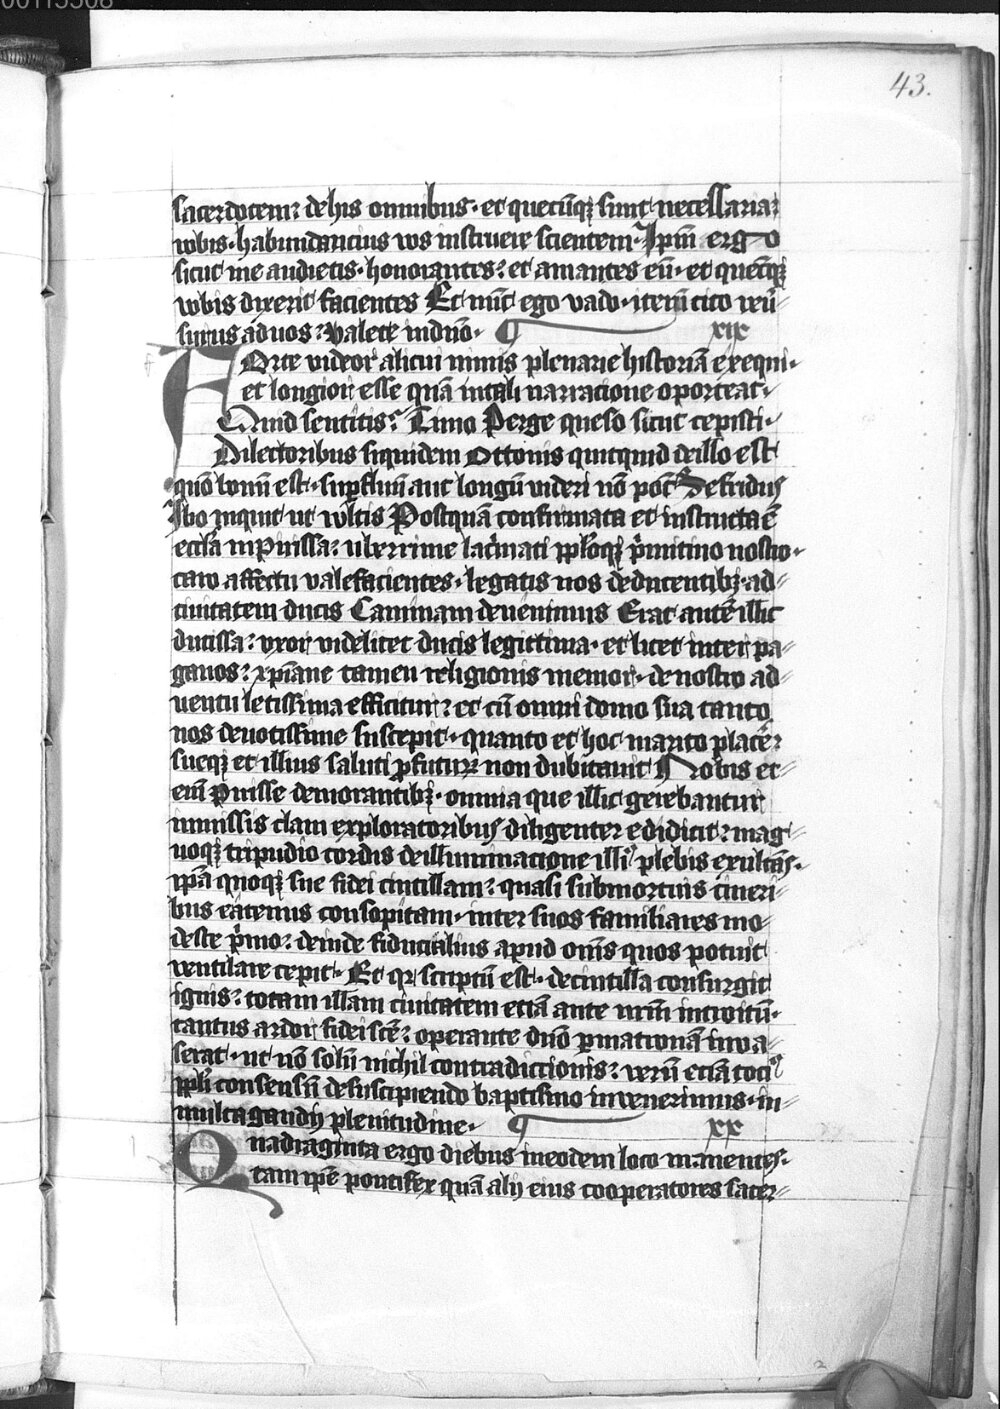 00115508
43.
sacerdotem: de his omnibus. et quecūqꝫ sunt necessaria
vobis. habundancius vos instruere scientem. Ip̄m ergo
sicut me audietis. honorantes: et amantes eū. et quecūqꝫ
vobis dixerit facientes Et nūc ego vado. iterū cito reū⸗
surus ad uos: valete in dn̄o. xix
Forte videor alicui nimis plenarie historiā exequi.
et longior esse quā in tali narracione oporteat.
Quid sentitis: Timo Perge queso sicut cepisti.
Dilectoribus siquidem Ottonis quitquid de illo est
quō bonū est. suꝑfluū aut longū videri nō pōt Sefridus
Ibo inquit ut vltis Postquā confirmata et instructa ē
eccl̄a in Pirissa: uberrime lac̄mati pp̄loqꝫ p̄mitiuo nostro.
caro affectu valefacientes. legatis nos deducentibꝫ. ad⸗
ciuitatem ducis Caminam deuenimus Erat autē illic
ducissa: vxor videlicet ducis legittima. et licet inter pa⸗
ganos: xp̄iane tamen religionis memor. de nostro ad⸗
uentu letissima efficitur: et cū omni domo sua tanto
nos deuotissime suscepit. quanto et hoc marito placere:
sueqꝫ et illius saluti ꝓfuturꝫ non dubitauit Nobis et⸗
em̄ Pirisse demorantibꝫ. omnia que illic gerebantur
inmissis clam exploratoribus diligenter edidicit: mag⸗
noqꝫ tripudio cordis de illuminacione illiꝰ plebis exultās.
ip̄ā quoqꝫ sue fidei cintillam: quasi submortuis cineri⸗
bus eatenus consopitam. inter suos familiares mo⸗
deste p̄mo: deinde fiducialius apud om̄s quos potuit
ventilare cepit. Et qꝛ scriptū est. de cintilla consurgit
ignis: totam illam ciuitatem eciā ante nr̄m introitū.
tantus ardor fidei scē: operante dn̄o ꝑ matronā inva⸗
serat. ut nō solū nichil contradictionis: verū eciā tociꝰ
pp̄li consensū de suscipiendo baptismo inuenerimus. in⸗
multa gaudij plenitudine. xx
Quadraginta ergo diebus in eodem loco manentes.
tam ip̄e pontifex quā alij eius cooperatores sacer⸗